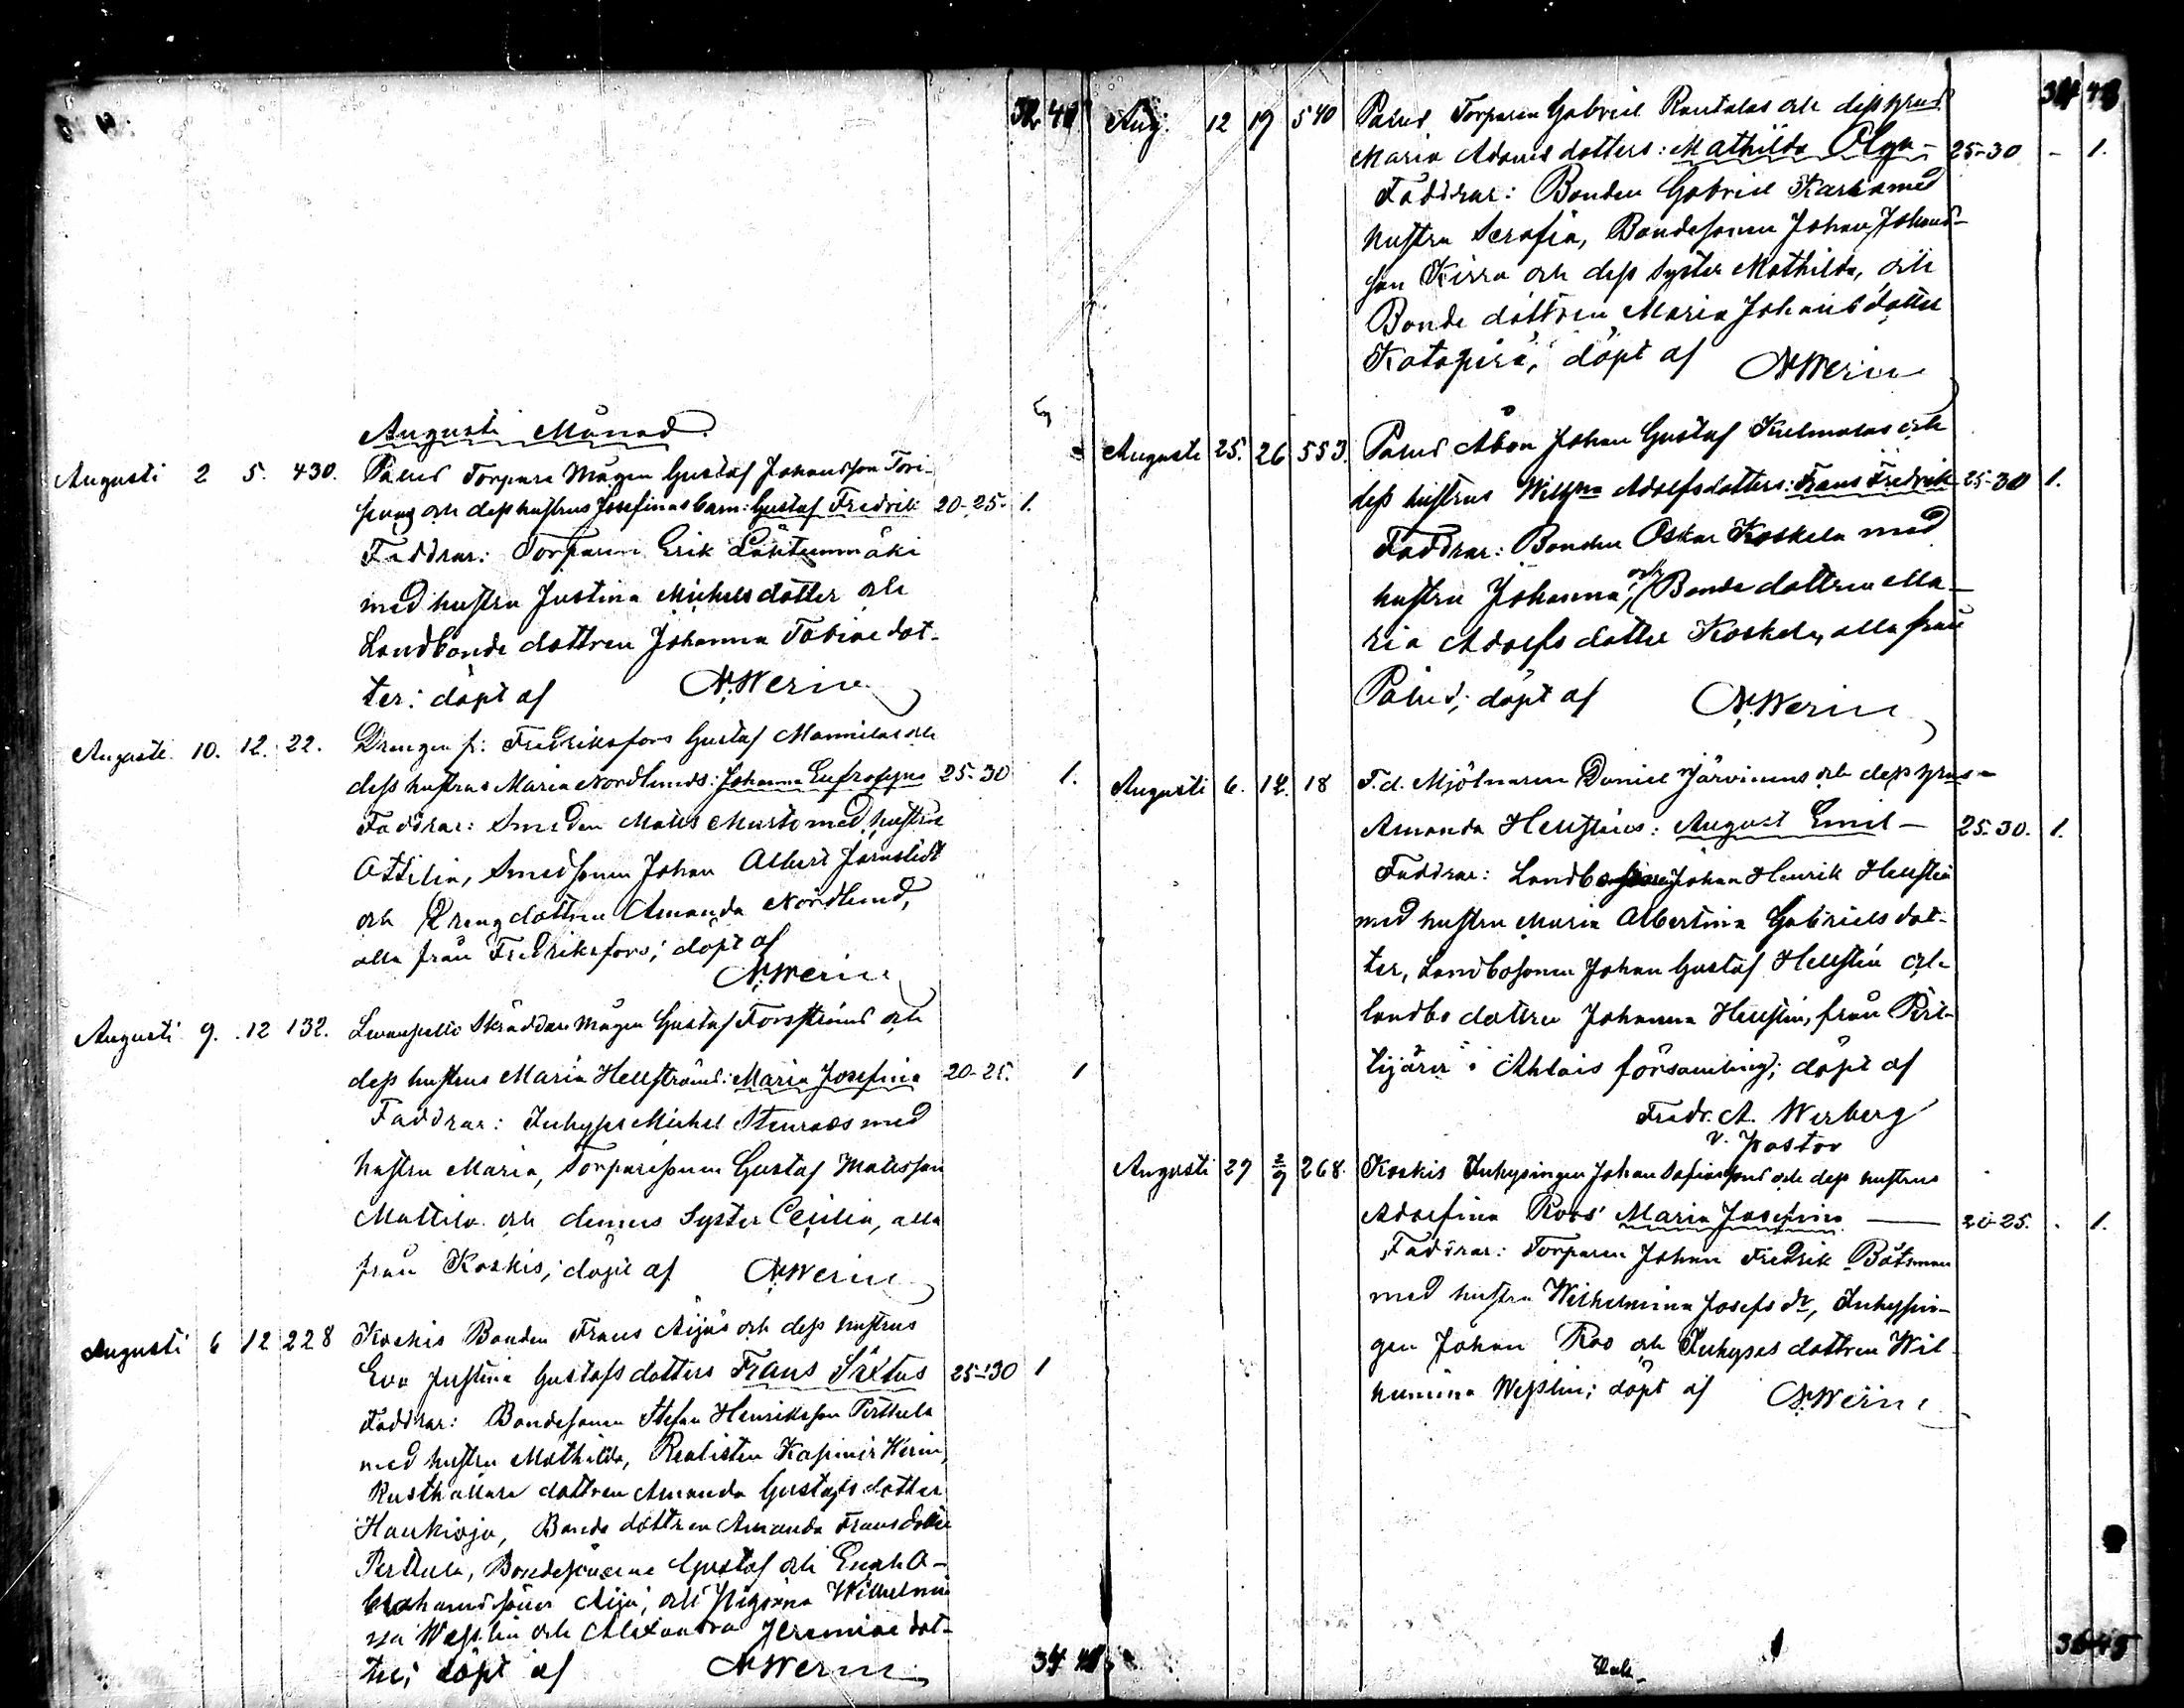 32 41
Augusti Månad.
Augusti 2 5. 430. Påmd Torpare Mågen Gustaf Johansson Tori-
och dess hustrus Josefinas barn: Gustaf Fredrik 20-25. 1.
Faddrar: Torparen Erik Lähteenmäki
med hustru Justina Michelsdotter och
Landbonde dottren Johanna Tobiae dot-
ter; döpt af N. Werin
Augusti 10. 12. 22. Drengen fr: Fredriksfors Gustaf Mannilas och
dess hustrus Maria Nordlunds: Johanna Eufrosyne 25-30 1.
Faddrar: Smeden Matts Murto med hustru
Ottilia, Smedsonen Johan Albert Jernstedt
och Drengdottren Amanda Nordlund,
alla från Fredriksfors; döpt af
N. Werin
Augusti 9. 12 132. Skräddare mågen Gustaf Forsströms och
dess hustrus Maria Hellströms: Maria Josefina 20-25. 1
Faddrar: Inhyses Michel Stenroos med
hustru Maria, Torparesonen Gustaf Matsson
Mattila och dennes Syster Cecilia, alla
från Koskis; döpt af N. Werin
Augusti 6 12 228 Koskis Bonden Frans Äijäs och dess hustrus
Eva Justina Gustafs dotters Frans Sixtus 25-30 1
Faddrar: Bondesonen Stefan Henriksson Perttula
med hustru Mathilda, Realisten Kasimir Werin,
Rusthållare dottren Amanda Gustafs dotter
Haukioja, Bonde dottren Amanda Frans dotter
Perttula, Bondesönerne Gustaf och Enoch A-
brahamssöner Äijä, och Pigorna Wilhelmi-
na Wesslin och Alexandra Jeremiae dot-
ter; döpt af N. Werin
34 41
34 43
Aug. 12 19 540 Påmd Torparen Gabriel Rantalas och dess hustrus
Maria Adams dotters: Mathilda Olga - 25-30 - 1.
Faddrar: Bonden Gabriel Karka med
hustru Serafia, Bondesonen Johan Johans-
son Kirra och dess Syster Mathilda, och
Bonde dottren Maria Johansdotter
döpt af N. Werin
Augusti 25. 26 553. Påmd Åbon Johan Gustaf Kulmalas och
dess hustrus Wilhma Adolfsdotters: Frans Fredrik 25-30 1.
Faddrar: Bonden Oskar Koskela med
hustru Johanna, och Bonde dottren Ma-
ria Adolfs dotter Koskela, alla från
Påmd; döpt af N. Werin
Augusti 6. 12. 18 F.d. Mjölnaren Daniel Järvinens och dess hustrus
Amanda Hellsténs: August Emil - 25-30. 1.
Faddrar: Johan Henrik Hellstén
med hustru Maria Albertina Gabriels dot-
ter, Landbosonen Johan Gustaf Hellstén och
landbo dottren Johanna Hellstén, från Pirt-
tijärvi i Ahlais församling; döpt af
Fredr. A. Werberg
v. Pastor
Augusti 29 2/9 268. Koskis Inhysingen Johan och dess hustrus
Adolfina Roos' Maria Josefina — 20-25. - 1.
Faddrar: Torparen Johan Fredrik Båtsman
med hustru Wilhelmina Josefs dr, Inhysin-
gen Johan Roo och Inhyses dottren Wil-
helmina Wesslin; döpt af N. Werin
36 45